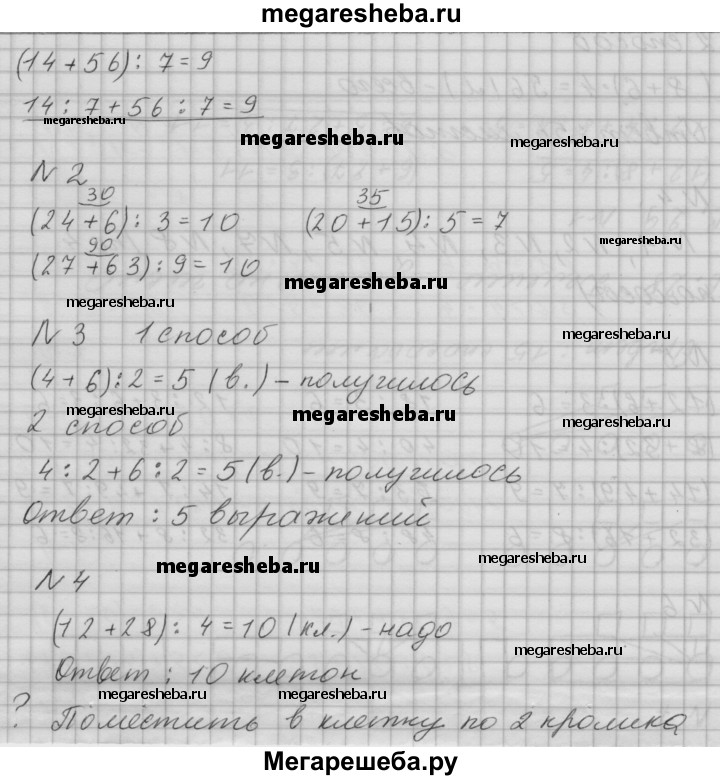 megaresheba.ru
(14+56): 7=9
14:7+56:7=9
megaresheba.ru
megaresheba.ru
megaresheba.ru
N 2
30 35
(24+6): 3=10 (20+15): 5=7
megaresheba.ru
90
(27+63):9=10
megaresheba.ru
megaresheba.ru
N 3 1 способ
megaresheba.ru
(4+6):2=5 (в.)-получилось
megaresheba.ru
megaresheba.ru
megaresheba.ru
2 способ
4:2+6:2=5(в.)-получилось
Ответ: 5 выражений
megaresheba.ru
megaresheba.ru
N 4
(12+28): 4=10(кл.)-надо
megaresheba.ru
Ответ: 10 клеток
megaresheba.ru megaresheba.ru
? Поместить в клетку по 2 кролика
Мегарешеба.ру